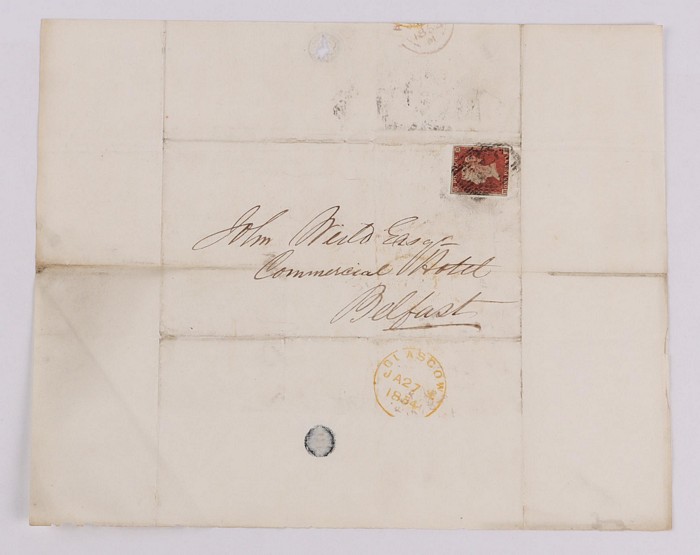 John Weild Esqr
Commercial Hotel
Belfast
GLASGOW
JA 27
1854